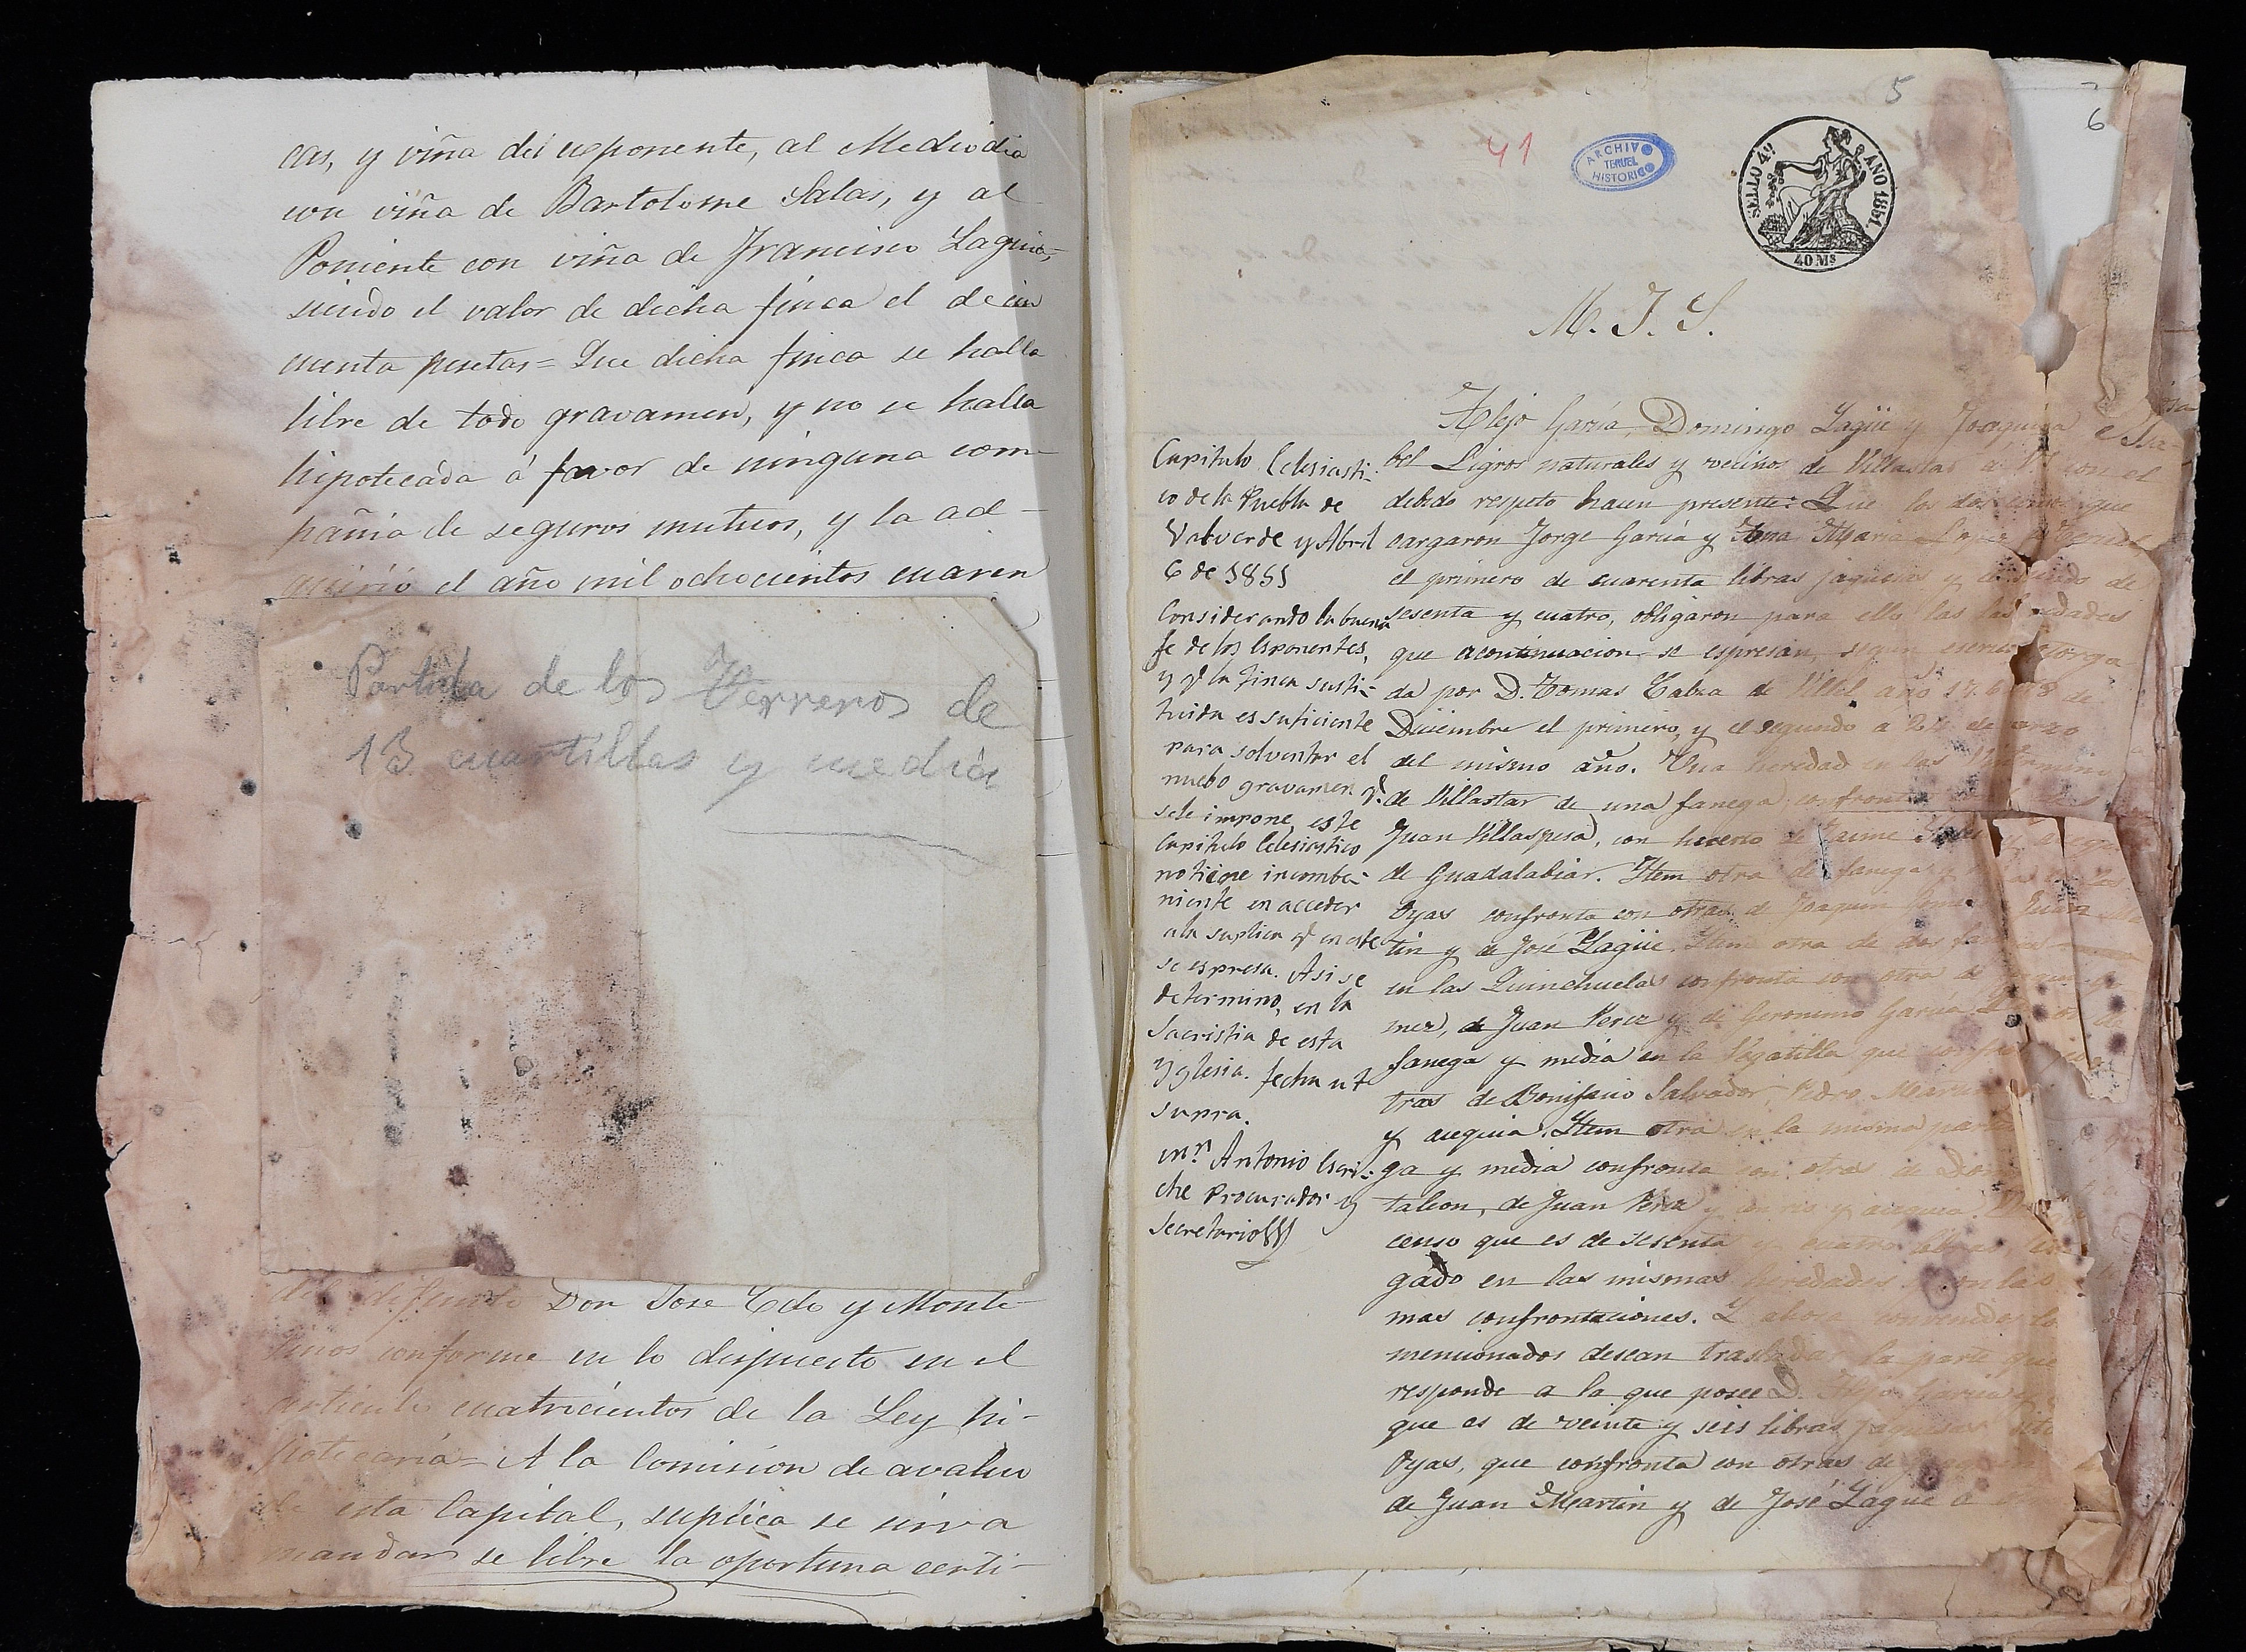 cas, y viña del esponente, al Mediodia
con viña de Bartolome Salas, y al
Poniente con viña de Francisco Laguia,
siendo el valor de dicha finca el de cin
cuenta pesetas = Que dicha finca se halla
libre de todo gravamen, y no se halla
hipotecada á favor de ninguna com-
pañia de seguros mutuos, y la ad-
quirió el año mil ochocientos cuaren
Partida de los Terreros de
13 cuartillas y media
del difunto Don Jose Edo y Monte-
sinos conforme en lo dispuesto en el
articulo cuatrocientos de la Ley hi-
potecaria = A la Comision de avaluo
de esta Capital, suplica se sirva
mandar se libre la oportuna certi-
5
6
41
ARCHIVO
TERUEL
HISTORICO
SELLO 4º AÑO 1851.
40 Ms
M. I. S.
Alejo García, Domingo Yagüe y Joaquina
Capitulo Eclesiasti-
co de la Puebla de
Valverde y Abril
6 de 1851
Considerando la buena
fe de los Esponentes,
y q.e la finca susti-
tuida es suficiente
para solventar el
nuebo gravamen q.e
se le impone, este
Capitulo Eclesiastico
no tiene incombe-
niente en acceder
a la suplica q.e en este
se espresa. Asi se
determino, en la
Sacristia de esta
Yglesia. fecha ut
supra.
Mn. Antonio Escri-
che Procurador y
Secretario
bel Ligros naturales y vecinos de Villastar a V. con el
debido respeto hacen presente: Que los dos que
cargaron Jorge García y Ana Maria Lopez
el primero de cuarenta libras jaquesas y el segundo de
sesenta y cuatro, obligaron para ello las heredades
que acontinuacion se espresan, segun otorga-
da por D. Tomas Cabra de Villel año 17 de
Diciembre el primero, y el segundo a de marzo
del mismo año. Una heredad en las
de Villastar de una fanega confronta
Juan Villaspesa, con huerto de Jaime y acequia
de Guadalabiar. Item otra de fanega y
Oyas confronta con otras de Joaquin Juan Mar
tin y de José Yagüe. Item otra de dos fanegas
en las Quinchuelas confronta con otra de
mez, de Juan Perez y de Geronimo Garcia
fanega y media en la Vegatilla que confronta
tras de Bonifacio Salvador, Pedro Martin
y acequia. Item otra en la misma partida
ga y media confronta con otras de
taleon, de Juan Perez y con rio y acequia.
censo que es de sesenta y cuatro libras,
gado en las mismas heredades
mas confrontaciones. Y ahora convenidos lo
mencionados desean trasladar la parte que
responde a la que posee D. Alejo Garcia
que es de veinte y seis libras jaquesas
Oyas, que confronta con otras de
de Juan Martin y de José Yagüe a